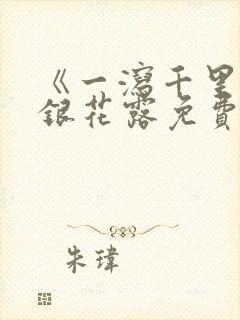 《一瀉千里
銀花露免費
朱瑋